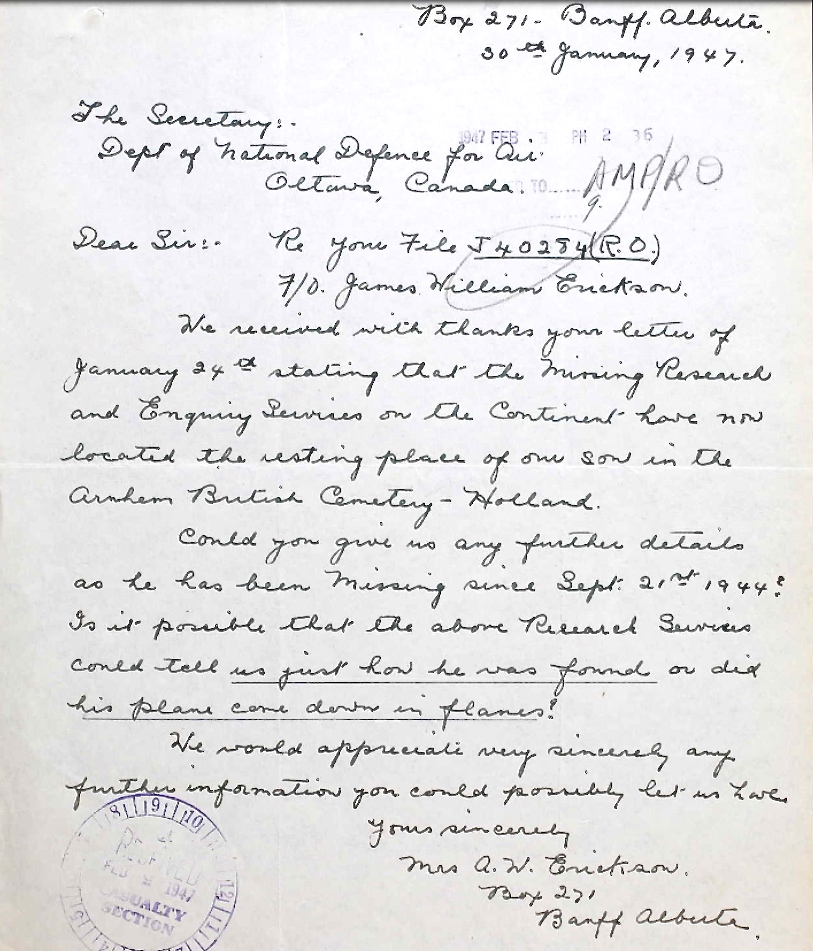 Box 271 - Banff. Alberta.
30th January, 1947.
The Secretary:-
1947 FEB 3 PM 2 36
Dept of National Defence for Air.
Ottawa, Canada.
TO......
AMP/RO
9.
Dear Sir:- Re your File J40284(R.O.)
F/O. James William Erickson.
We received with thanks your letter of
January 24th stating that the Missing Research
and Enquiry Services on the Continent have now
located the resting place of our son in the
Arnhem British Cemetery - Holland.
Could you give us any further details
as he has been Missing since Sept. 21st 1944?
Is it possible that the above Research Services
could tell us just how he was found or did
his plane come down in flames?
We would appreciate very sincerely any
further information you could possibly let us have
Yours sincerely
Mrs A. W. Erickson.
Box 271
Banff Alberta.
8 9 10
RECEIVED
FEB 1947
CASUALTY
SECTION